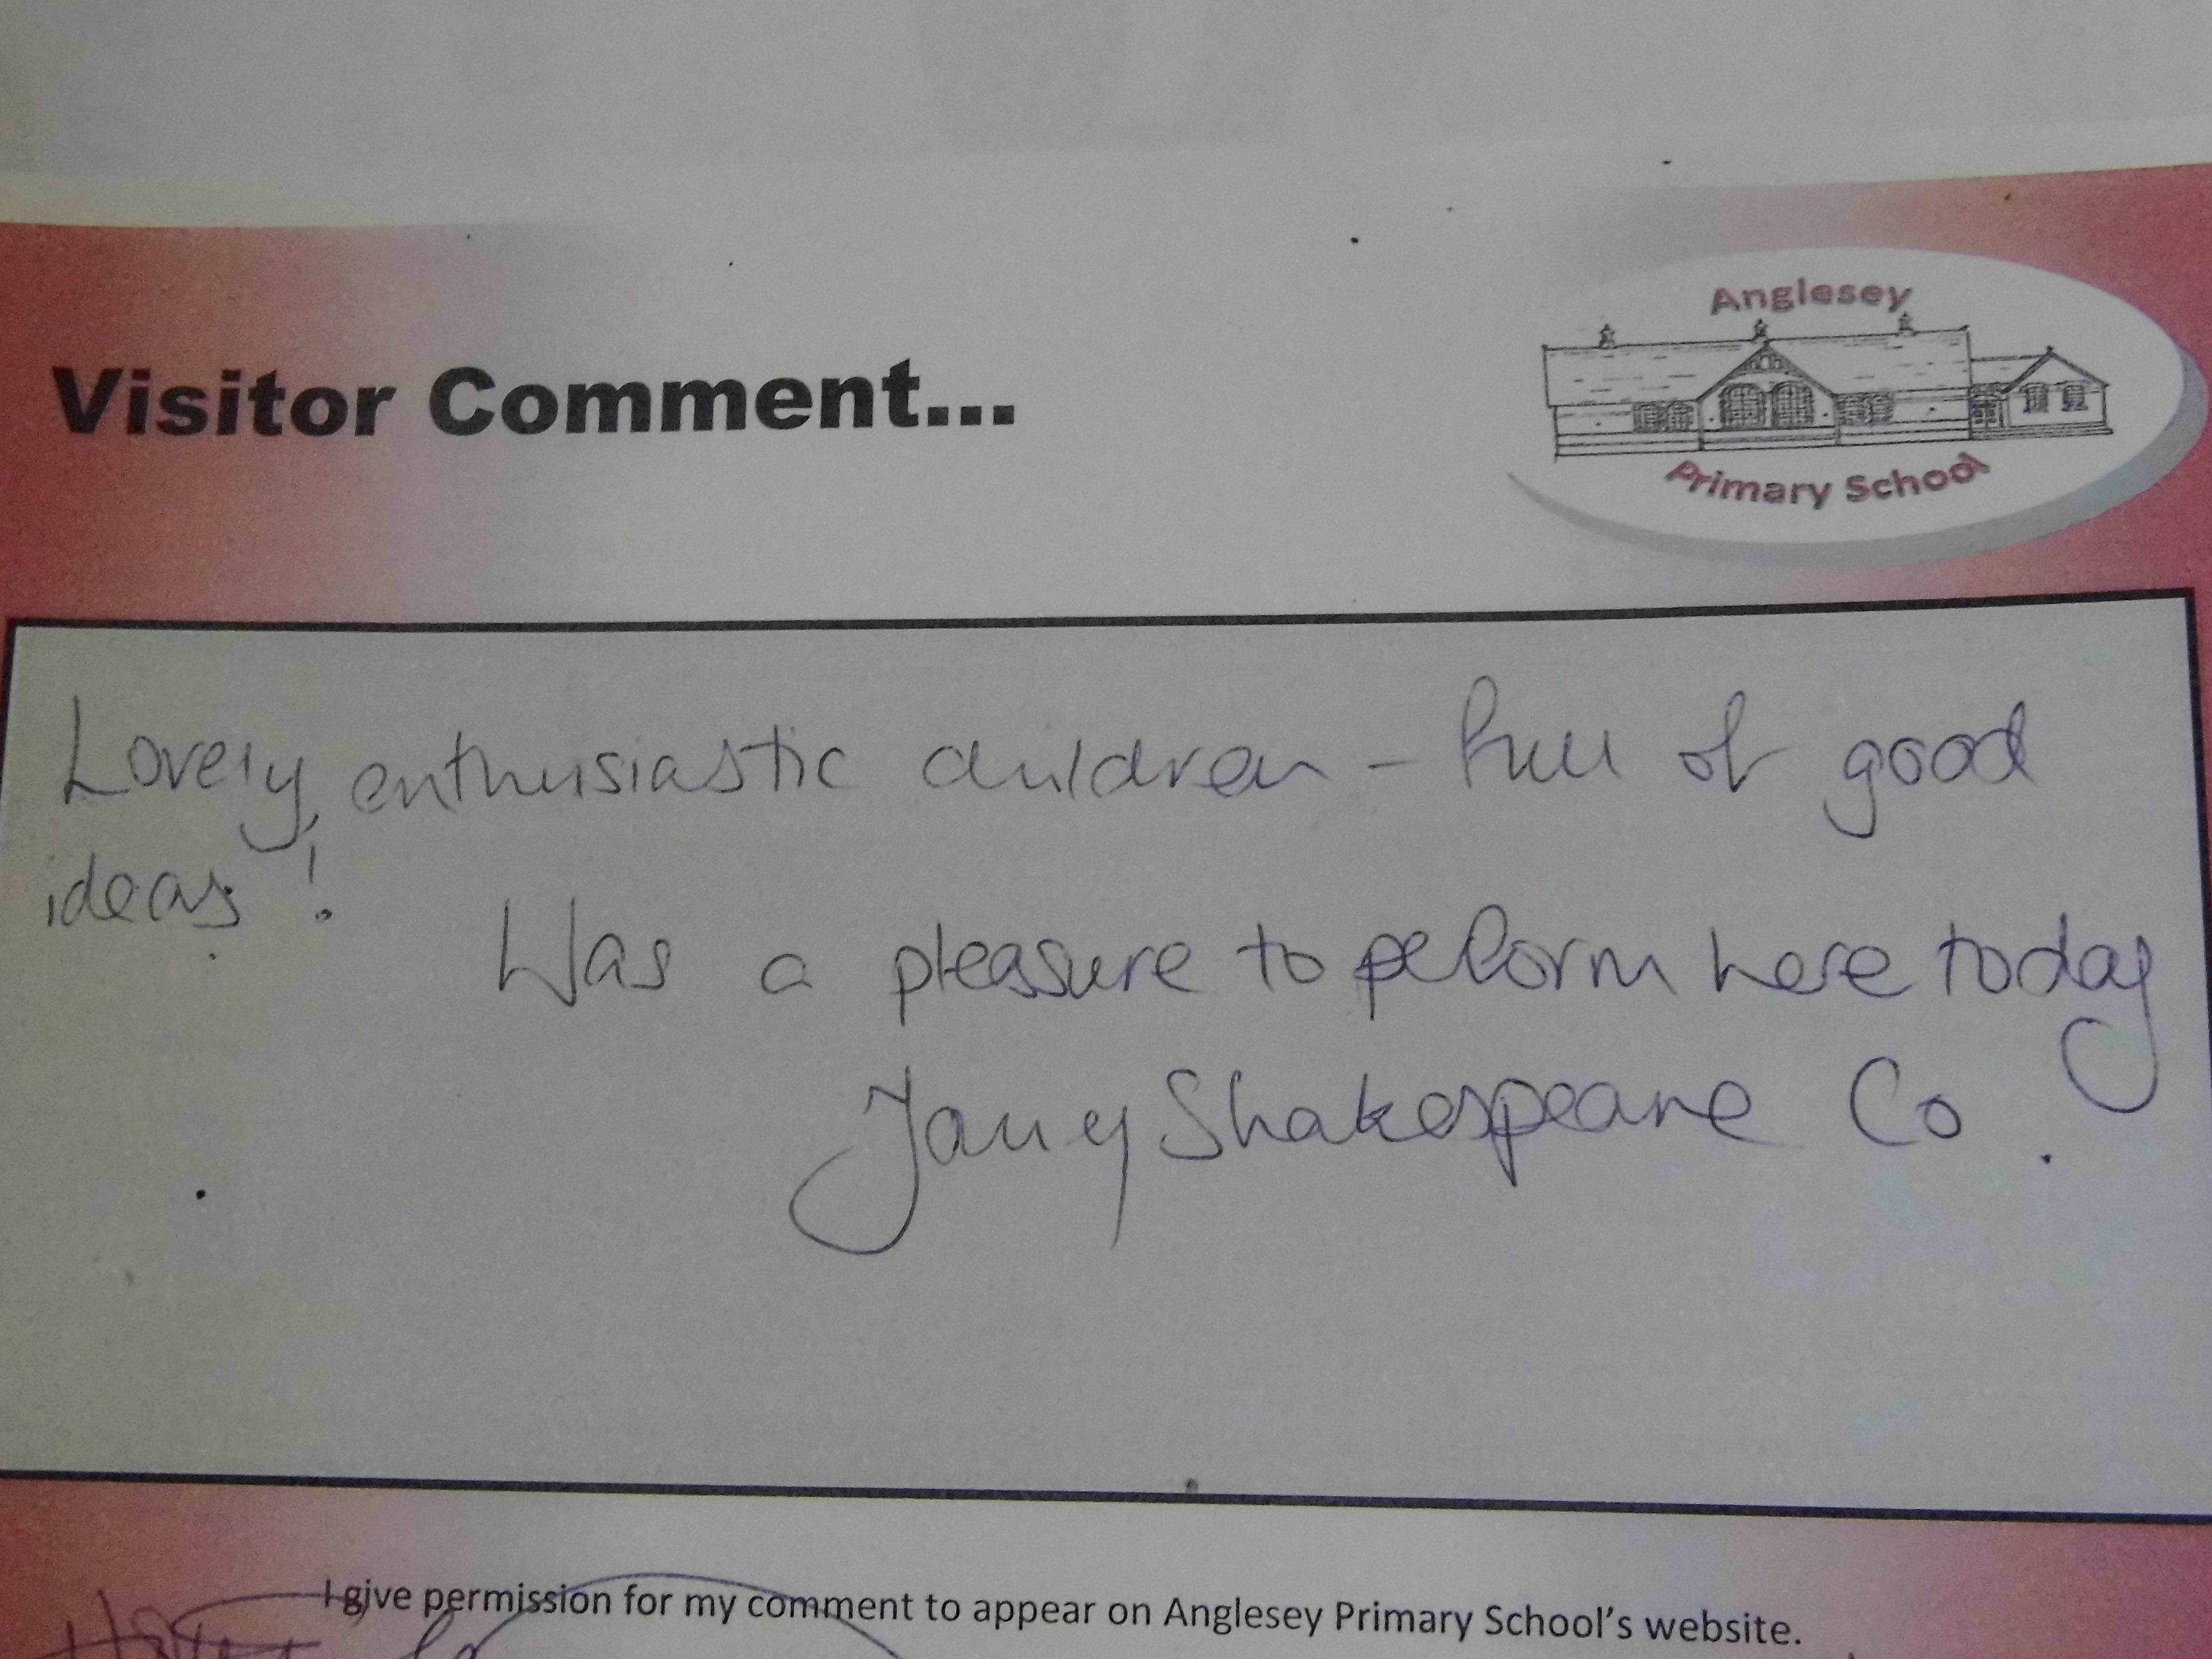 Anglesey
Primary School
Visitor Comment...
Lovely, enthusiastic children - full of good
ideas!
Was a pleasure to perform here today
Shakespeare Co.
I give permission for my comment to appear on Anglesey Primary School's website.